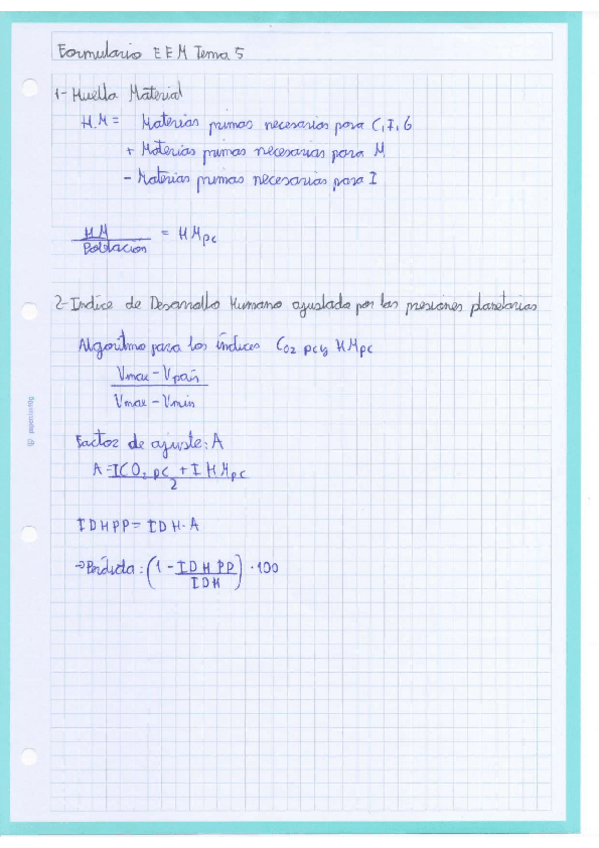 Formulario EEM Tema 5
1- Huella Material
H.M = Materias primas necesarias para C, I, G
+ Materias primas necesarias para M
- Materias primas necesarias para I
HM
Población
= HMpc
2- Indice de Desarrollo Humano ajustado por las presiones planetarias
Algoritmo para los índices CO2 pc y HMpc
Vmax - Vpaís
Vmax - Vmin
Factor de ajuste: A
A = ICO2 pc + IHMpc
2
IDHPP = IDH · A
→ Pérdida: (1 - IDHPP
IDH
) · 100